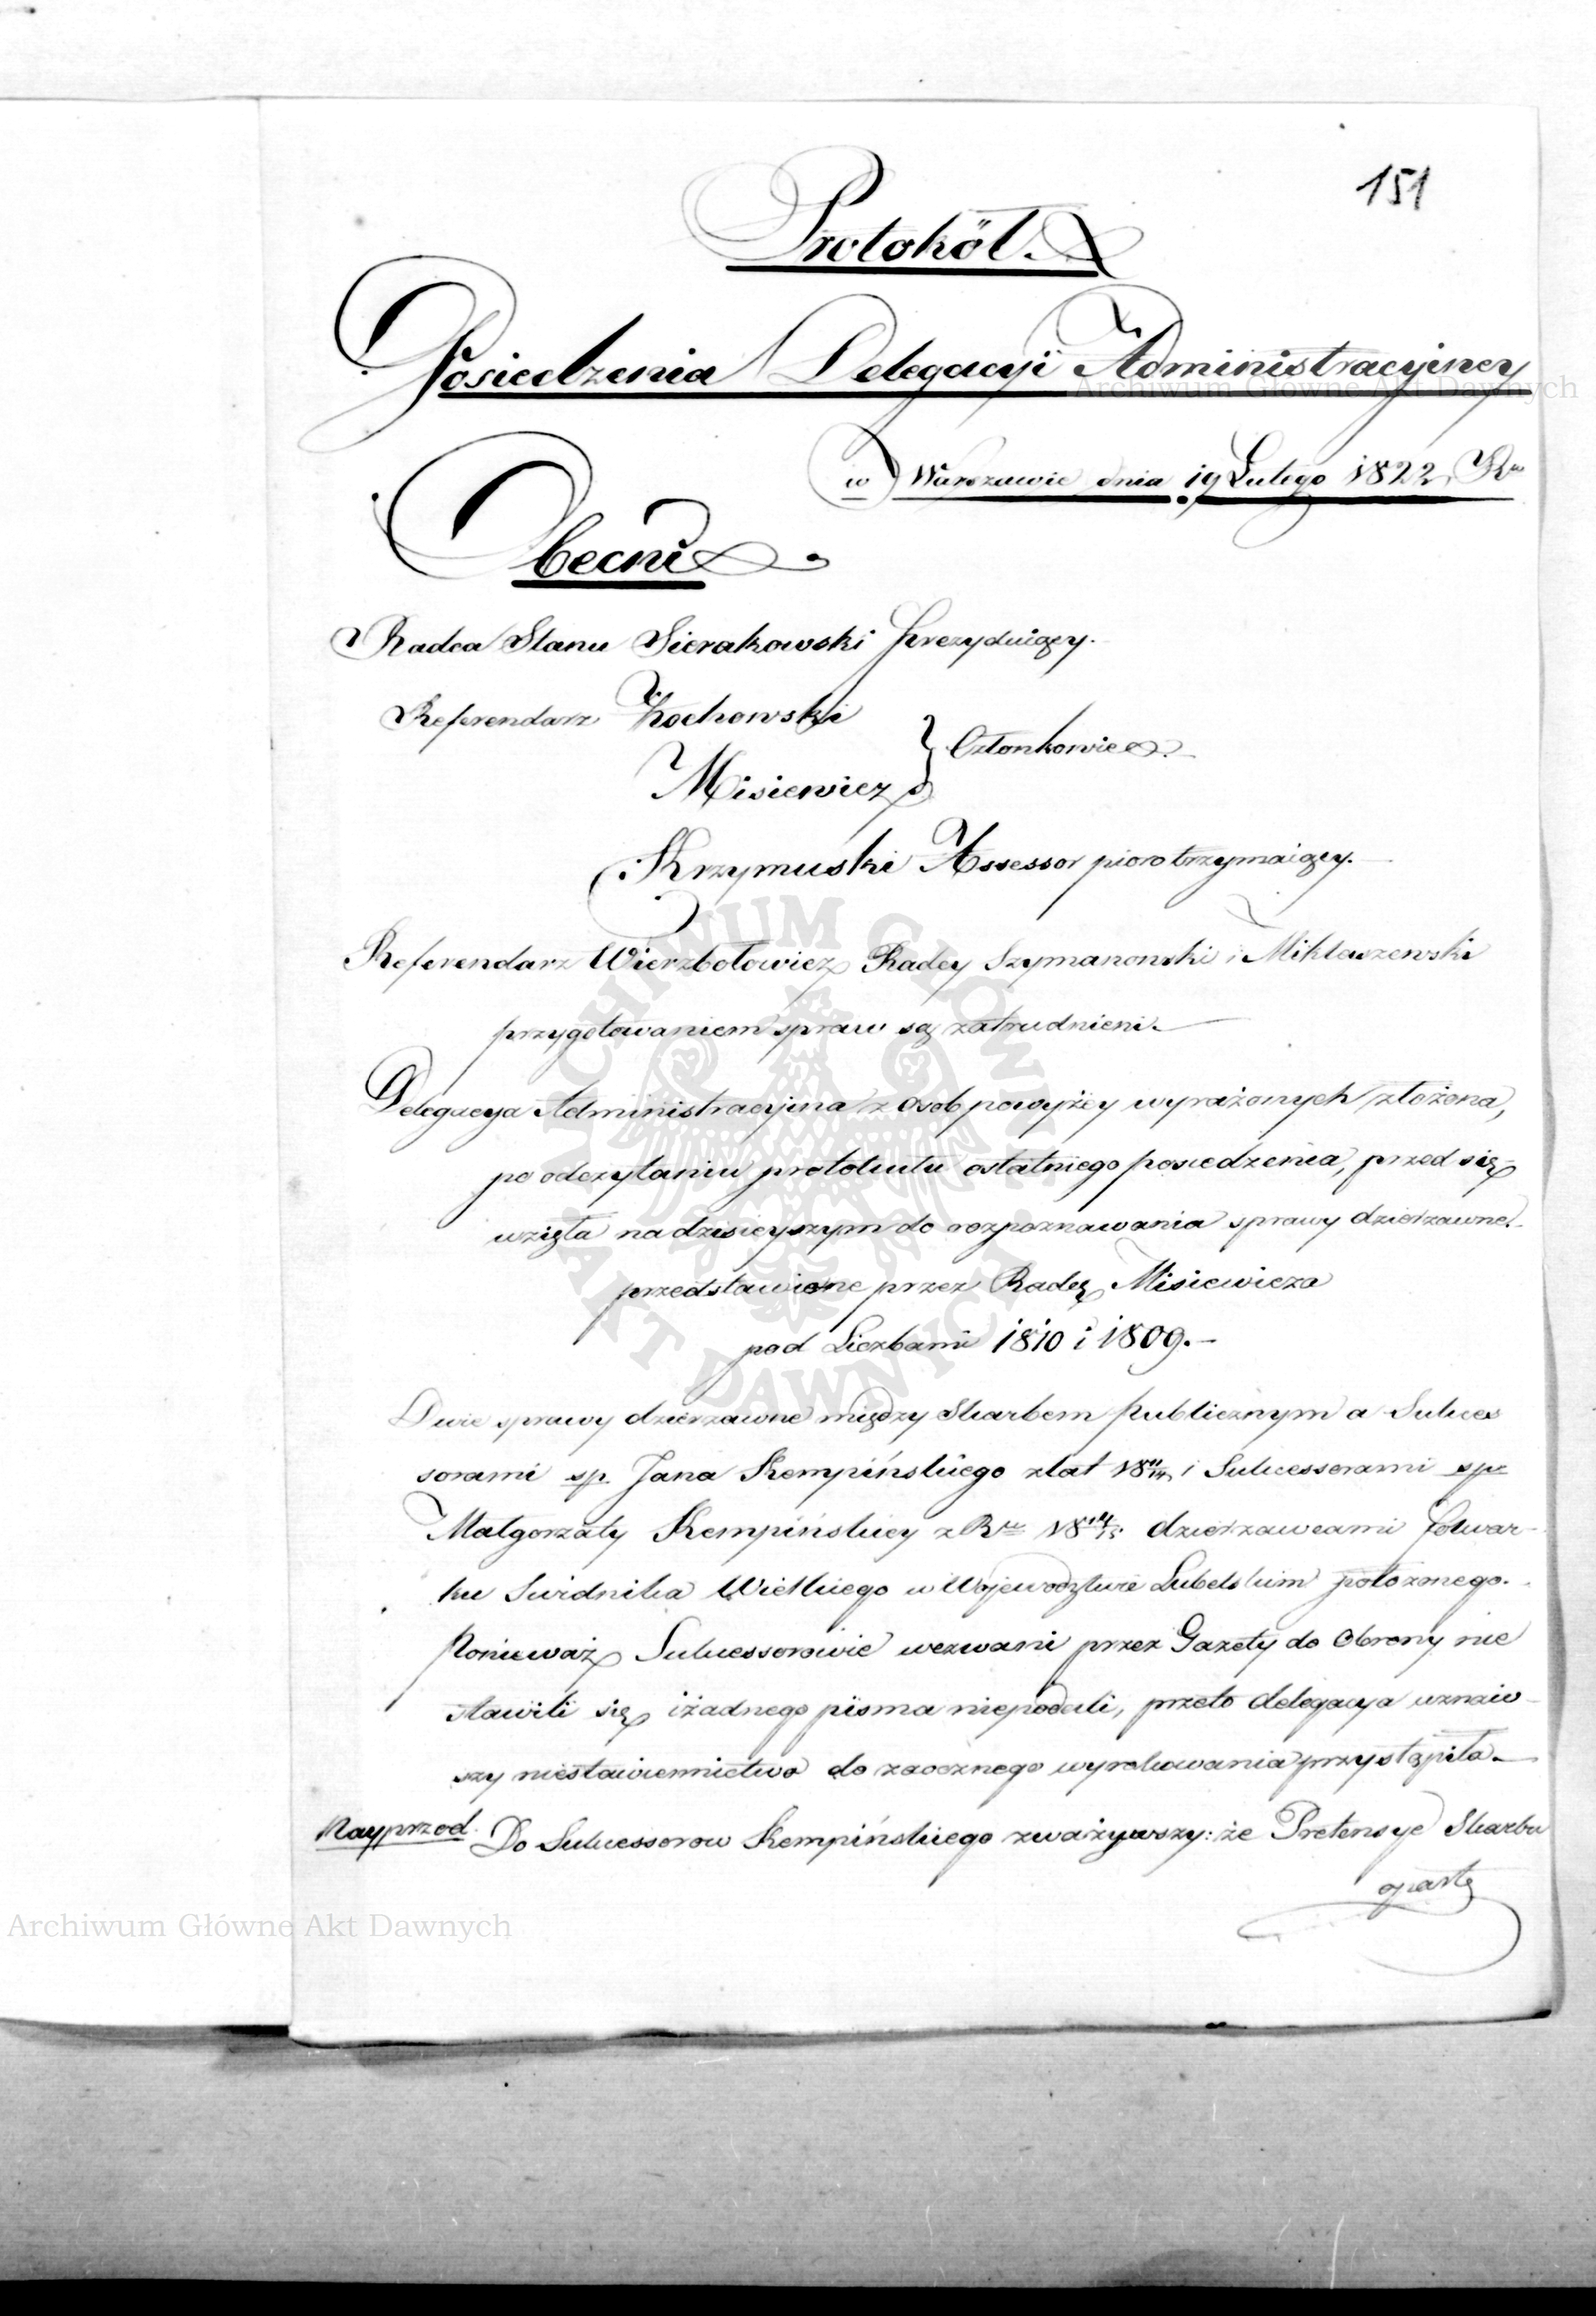 151
Protokół.
Posiedzenia Delegacyi Administracyiney
w Warszawie dnia 19 Lutego 1822. Ru
Obecni
Radca Stanu Sierakowski Prezyduiący.
Referendarz Kochowski
Członkowie
Misiewicz
Krzymuski Assessor pioro trzymaiący.
Referendarz Wierzbołowicz Radcy Szymanowski i Mikłaszewski
przygotowaniem spraw są zatrudnieni.
Delegacya Administracyina z osob powyżey wyrażonych złożona,
po odczytaniu protokułu ostatniego posiedzenia, przed się
wzięła na dzisieyszym do rozpoznawania sprawy dzierżawne.
przedstawione przez Radcę Misiewicza
pod Liczbami 1810 i 1809.
Dwie sprawy dzierzawne między Skarbem Publicznym a Sukces
sorami sp. Jana Kempińskiego z lat 18 11/14 i Sukcessorami sp
Małgorzaty Kempińskiey z Ru 18 14/15 dzierzawcami folwar-
ku Swidnika Wielkiego w Woiewodztwie Lubelskim położonego.
Ponieważ Sukcessorowie wezwani przez Gazety do Obrony nie
stawili się i żadnego pisma niepodali, przeto delegacya uznaw-
szy niestawiennictwo do zaocznego wyrokowania przystąpiła
Nayprzod. Do Sukcessorow Kempińskiego zważywszy: że Pretensye Skarbu
oparte
Archiwum Główne Akt Dawnych
Archiwum Główne Akt Dawnych
ARCHIWUM GŁÓWNE AKT DAWNYCH